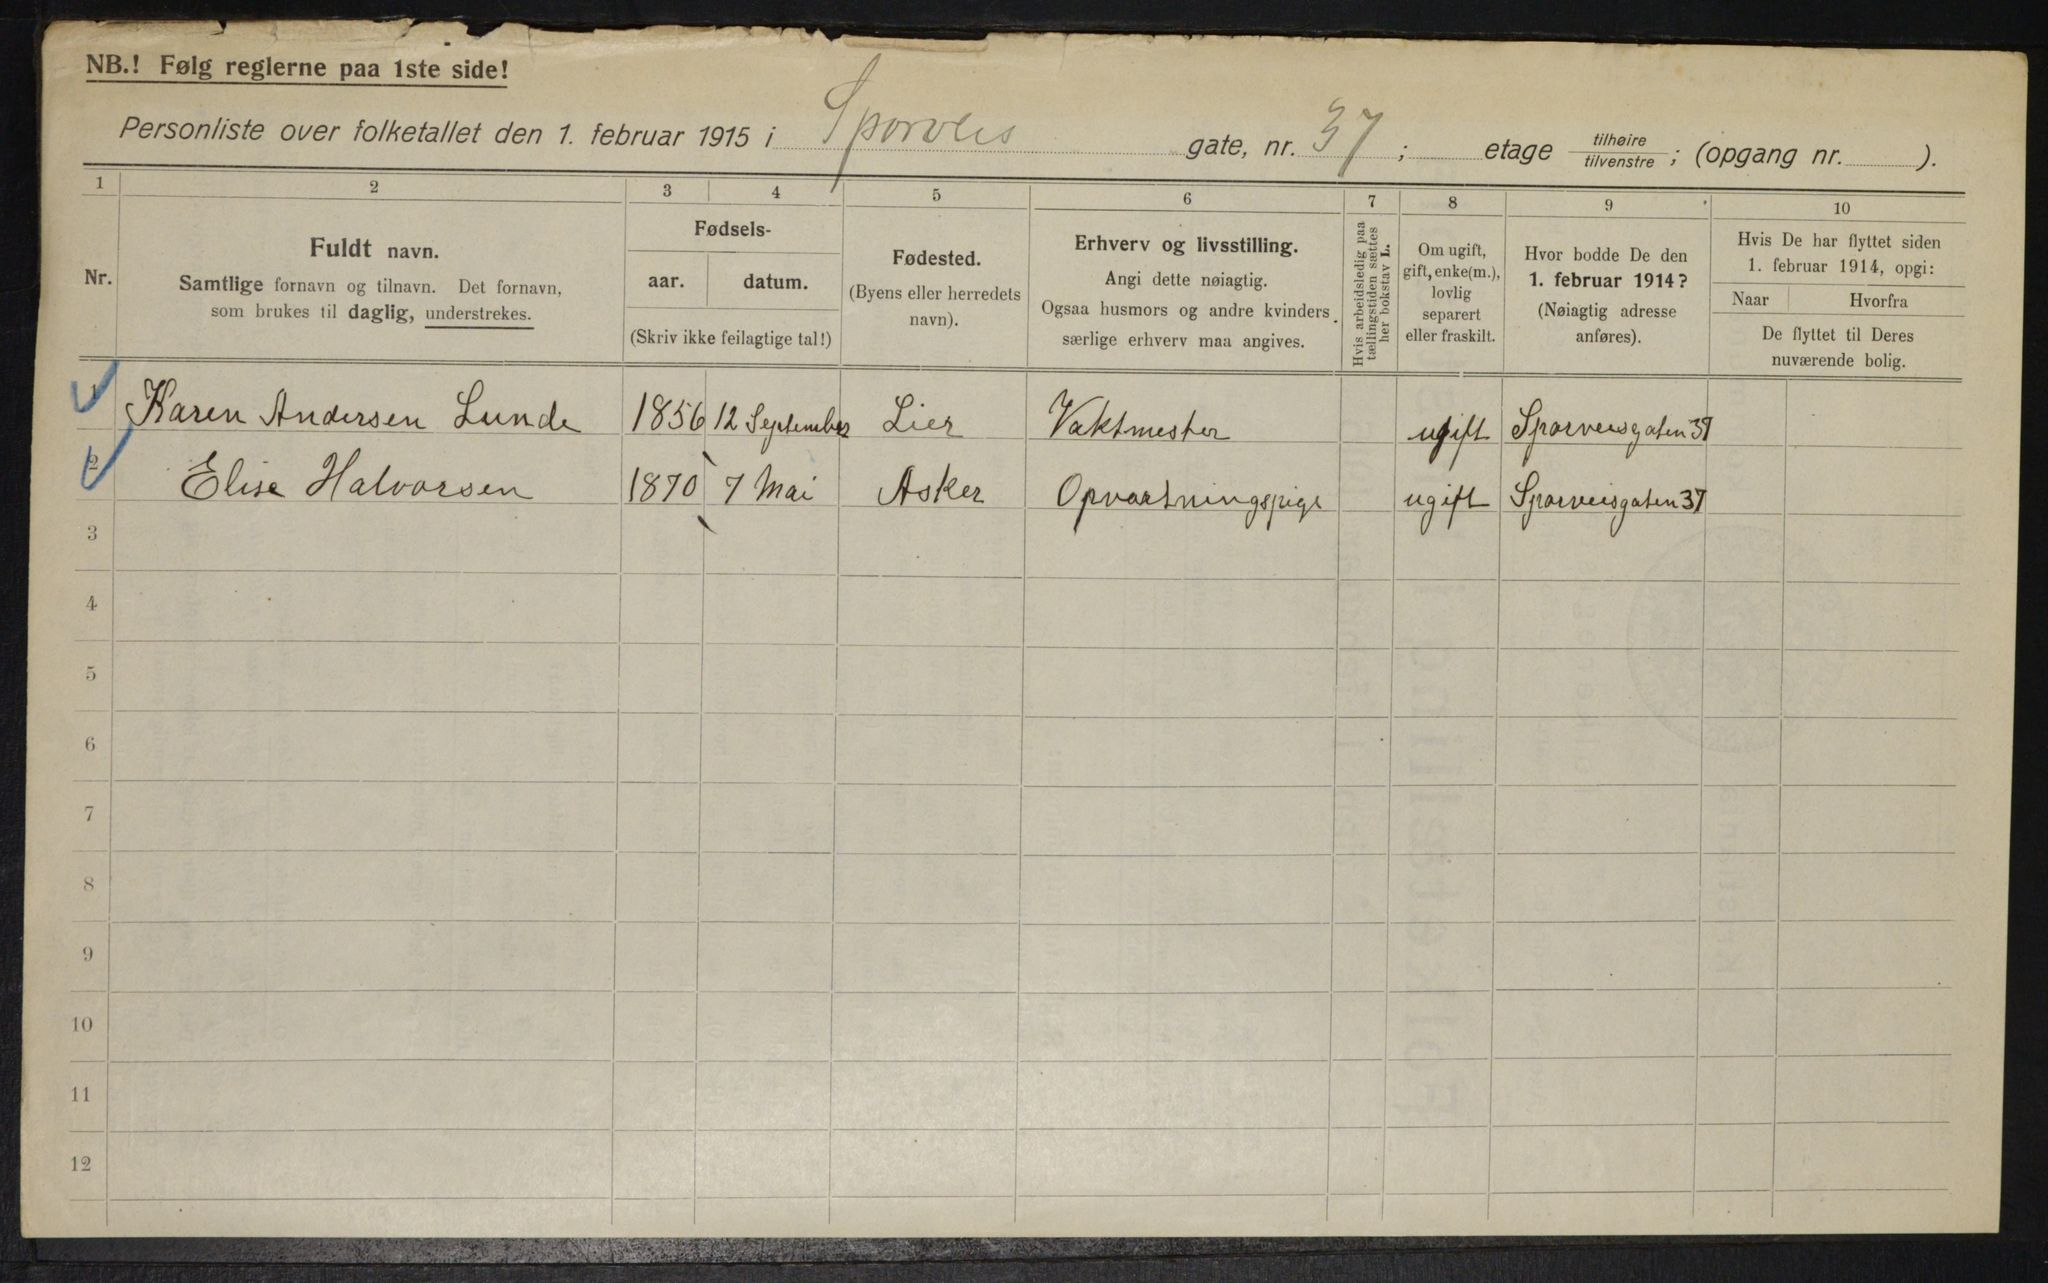 NB.! Følg reglerne paa 1ste side!
Personliste over folketallet den 1. februar 1915 i Sporveis gate, nr. 37 ; etage tilhøire tilvenstre ; (opgang nr. ).
1 2 3 4 5 6 7 8 9 10
Nr.
Fuldt navn.
Samtlige fornavn og tilnavn. Det fornavn,
som brukes til daglig, understrekes.
Fødsels-
aar. datum.
(Skriv ikke feilagtige tal!)
Fødested.
(Byens eller herredets
navn).
Erhverv og livsstilling.
Angi dette nøiagtig.
Ogsaa husmors og andre kvinders
særlige erhverv maa angives.
Hvis arbeidsledig paa
tællingstiden sættes
her bokstav L.
Om ugift,
gift, enke(m.),
lovlig
separert
eller fraskilt.
Hvor bodde De den
1. februar 1914?
(Nøiagtig adresse
anføres).
Hvis De har flyttet siden
1. februar 1914, opgi:
Naar Hvorfra
De flyttet til Deres
nuværende bolig.
1 Karen Andersen Lunde 1856 12 September Lier Vaktmester ugift Sporveisgaten 37
2 Elise Halvorsen 1870 7 Mai Asker Opvartningspige ugift Sporveisgaten 37
3
4
5
6
7
8
9
10
11
12